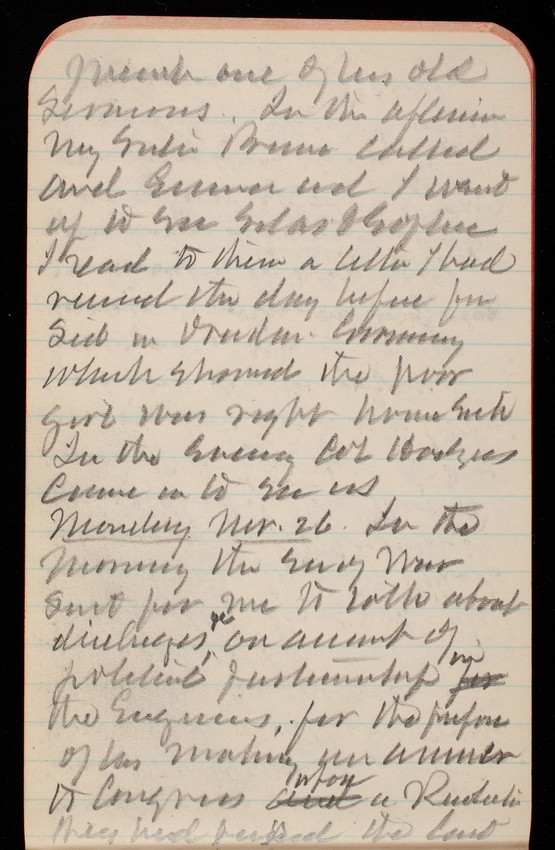 preach one of his old
Sermons. In the afternoon
Mrs Bruce called
and Emma and I went
up to see Silas & Sophie
I read to them a letter I had
received the day before from
Sid in Dresden Germany
which showed the poor
girl was right home sick
In the Evening Col Hodges
Came in to see us
Monday Nov. 26. In the
Morning the Secy War
sent for me to talk about
discharges, on account of
political partisanship in for
the Engineers, for the purpose
of his making an answer
to Congress and upon a Resolution
they had passed the last